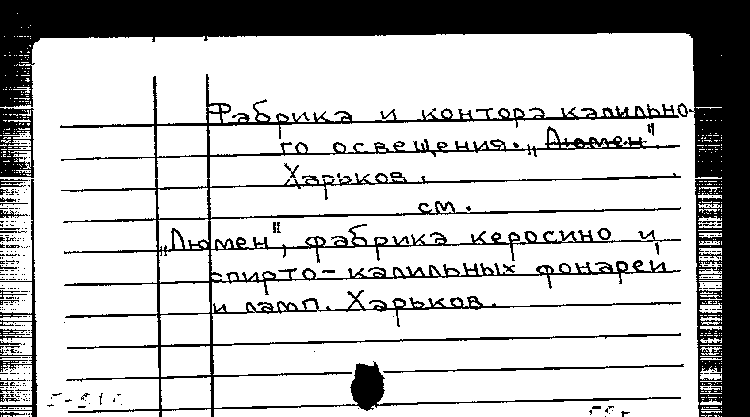 Фабрика и контора калильно-
го освещения. „Люмен".
Харьков.
см.
„Люмен", фабрика керосино и
спирто-калильных фонарей
и ламп. Харьков.